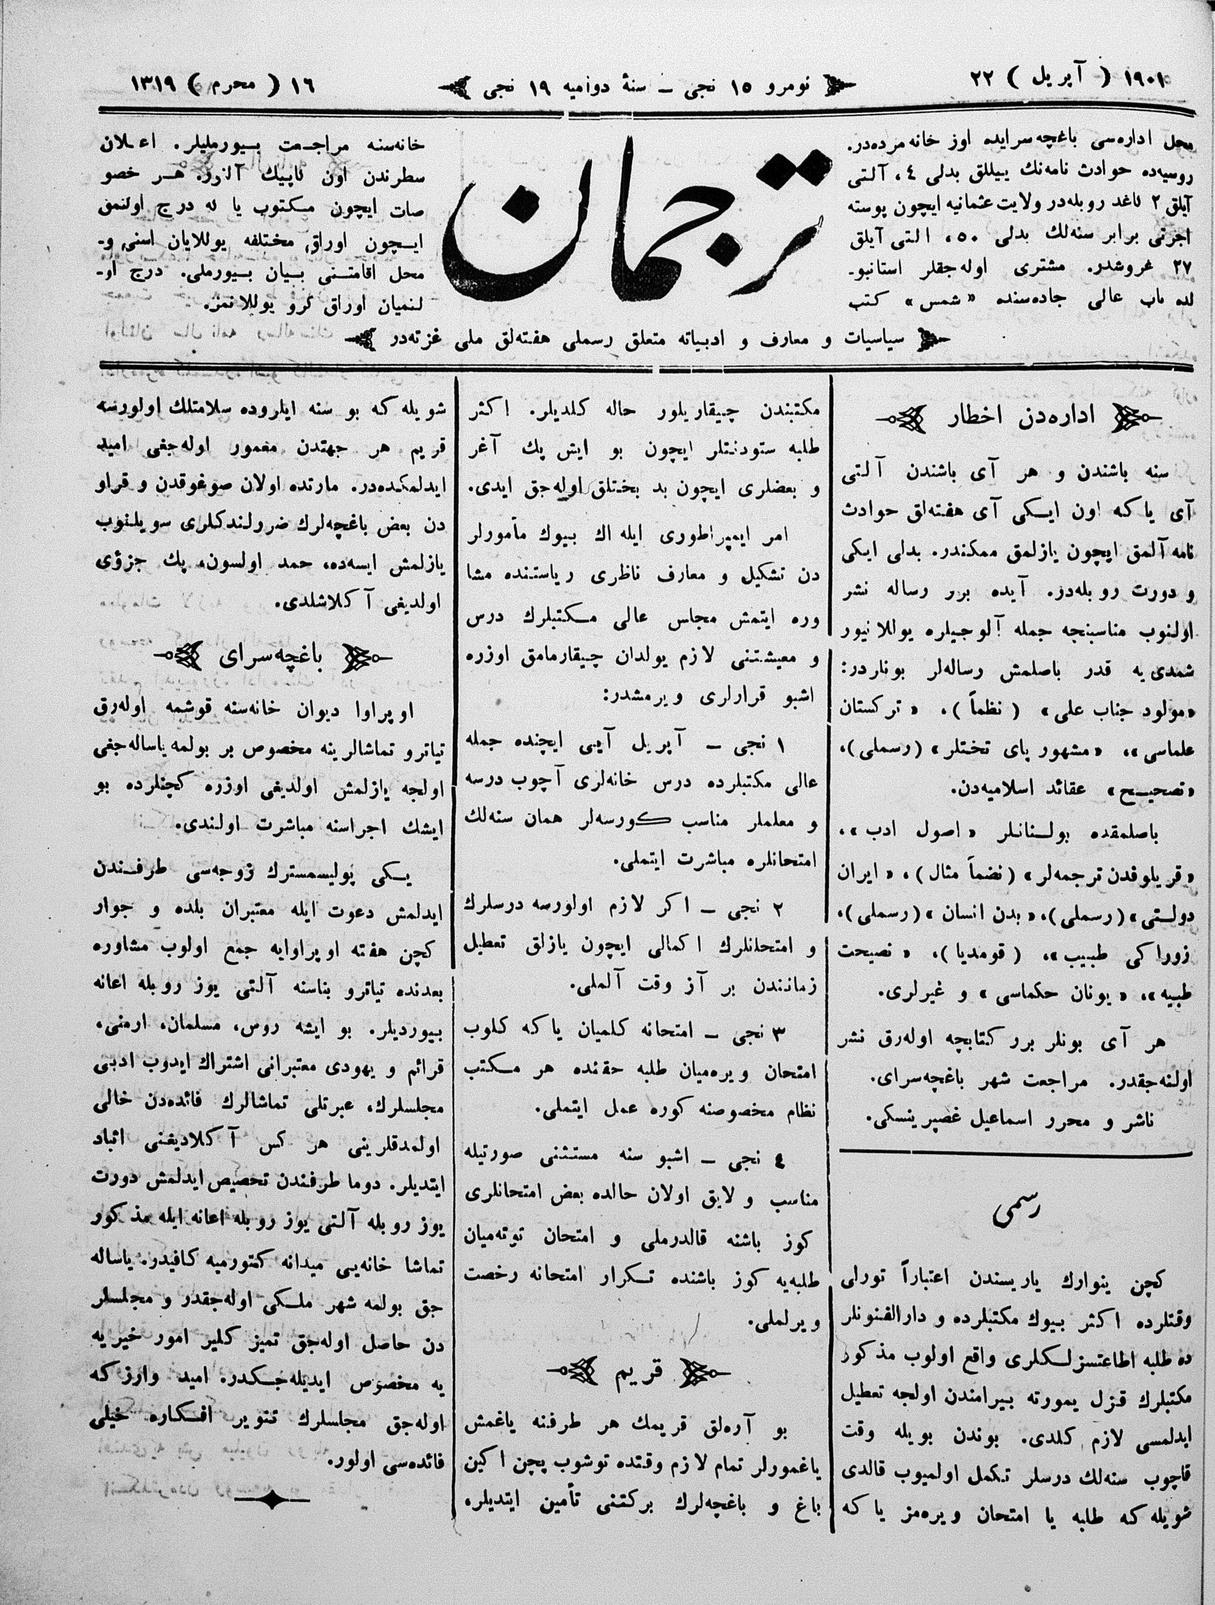 ١٩٠١ ( آپريل ) ٢٢
نومرو ١٥ نجى ـ سنهٔ دواميه ١٩ نجى
١٦ ( محرم ) ١٣١٩
محل اداره‌سى باغچه‌سرايده اوز خانه مزده‌در.
روسيه‌ده حوادث نامه‌نك ييللق بدلى ٤، آلتى
آيلق ٢ ڭاغد روبله‌در ولايت عثمانيه ايچون پوسته
اجرتى برابر سنه‌لك بدلى ٥٠، التى آيلق
٢٧ غروشدر. مشترى اوله‌جقلر استانبو-
لده باب عالى جاده‌سنده «شمس» كتب
ترجمان
خانه‌سنه مراجعت بيورمليلر. اعلان
سطرندن اون كاپيك آلنر. هر خصو
صات ايچون مكتوب يا له درج اولنمق
ايچون اوراق مختلفه يوللايان اسنى و-
محل اقامتنى بيان بيورملى. درج او-
لنميان اوراق كرو يوللانمز.
سياسيات و معارف و ادبياته متعلق رسملى هفته‌لق ملى غزته‌در
اداره‌دن اخطار
سنه باشندن و هر آى باشندن آلتى
آى ياكه اون ايكى آى هفته‌لق حوادث
نامه آلمق ايچون يازلمق ممكندر. بدلى ايكى
و دورت روبله‌در. آيده برر رساله نشر
اولنوب مناسبنجه جمله آلوجيلره يوللانيور
شمدى‌يه قدر باصلمش رساله‌لر بونلردر:
«مولود جناب على» (نظماً)، «تركستان
علماسى»، «مشهور پاى تختلر» (رسملى)،
«تصحيح» عقائد اسلاميه‌دن.
باصلمقده بولنانلر «اصول ادب»،
«قريلوفدن ترجمه‌لر» (نضماً مثال)، «ايران
دولتى» (رسملى)، «بدن انسان» (رسملى)،
زوراكى طبيب»، (قومديا)، «نصيحت
طبيه»، «يونان حكماسى» و غيرلرى.
هر آى بونلر برر كتابچه اوله‌رق نشر
اولنه‌جقدر. مراجعت شهر باغچه‌سراى.
ناشر و محرر اسماعيل غصپرينسكى.
رسمى
كچن ينوارك ياريسندن اعتباراً تورلى
وقتلرده اكثر بيوك مكتبلرده و دارالفنونلر
ده طلبه اطاعتسزلكلرى واقع اولوب مذكور
مكتبلرك قزل يمورته بيرامندن اولجه تعطيل
ايدلمسى لازم كلدى. بوندن بويله وقت
قاچوب سنه‌لك درسلر تكمل اولميوب قالدى
شويله‌كه طلبه يا امتحان ويره‌مز ياكه
مكتبندن چيقاريلور حاله كلديلر. اكثر
طلبه ستودنتلر ايچون بو ايش پك آغر
و بعضلرى ايچون بد بختلق اوله‌جق ايدى.
امر ايمپراطورى ايله اڭ بيوك مأمورلر
دن تشكيل و معارف ناظرى رياستنده مشا
وره ايتمش مجلس عالى مكتبلرك درس
و معيشتنى لازم يولدان چيقارمامق اوزره
اشبو قرارلرى ويرمشدر:
١ نجى ـ آپريل آيى ايچنده جمله
عالى مكتبلرده درس خانه‌لرى آچوب درسه
و معلملر مناسب كورسه‌لر همان سنه‌لك
امتحانلره مباشرت ايتملى.
٢ نجى ـ اكر لازم اولورسه درسلرك
و امتحانلرك اكمالى ايچون يازلق تعطيل
زمانندن بر آز وقت آلملى.
٣ نجى ـ امتحانه كلميان ياكه كلوب
امتحان ويره‌ميان طلبه حقنده هر مكتب
نظام مخصوصنه كوره عمل ايتملى.
٤ نجى ـ اشبو سنه مستثنى صورتيله
مناسب و لايق اولان حالده بعض امتحانلرى
كوز باشنه قالدرملى و امتحان توته‌ميان
طلبه‌يه كوز باشنده تكرار امتحانه رخصت
ويرلملى.
قريم
بو آره‌لق قريمك هر طرفنه ياغمش
ياغمورلر تمام لازم وقتده توشوب پچن اكين
باغ و باغچه‌لرك بركتنى تأمين ايتديلر،
شويله‌كه بو سنه ايلروده سلامتلك اولورسه
قريم هر جهتدن معمور اوله‌جغى اميد
ايدلمكده‌در. مارتده اولان صوغوقدن و قراو
دن بعض باغچه‌لرك ضرولندكلرى سويلنوب
يازلمش ايسه‌ده، حمد اولسون، پك جزؤى
اولديغى آڭلاشلدى.
باغچه‌سراى
اوپراوا ديوان خانه‌سنه قوشمه اوله‌رق
تياترو تماشالرينه مخصوص بر بولمه ياساله‌جغى
اولجه يازلمش اولديغى اوزره كچنلرده بو
ايشك اجراسنه مباشرت اولندى.
يكى پوليسمسترك زوجه‌سى طرفندن
ايدلمش دعوت ايله معتبران بلده و جوار
كچن هفته اوپراوايه جمع اولوب مشاوره
بعدنده تياترو بناسنه آلتى يوز روبله اعانه
بيورديلر. بو ايشه روس، مسلمان، ارمنى،
قرائم و يهودى معتبرانى اشتراك ايدوب ادبى
مجلسلرك، عبرتلى تماشالرك فائده‌دن خالى
اولمدقلرينى هر كس آڭلاديغنى اثبات
ايتديلر. دوما طرفندن تخصيص ايدلمش دورت
يوز روبله آلتى يوز روبله اعانه ايله مذكور
تماشا خانه‌يى ميدانه كتورميه كافيدر. ياساله
جق بولمه شهر ملكى اوله‌جقدر و مجلسلر
دن حاصل اوله‌جق تميز كلير امور خيريه
يه مخصوص ايديله‌جكدر. اميد واركه
اوله‌جق مجلسلرك تنوير افكاره خيلى
فائده‌سى اولور.